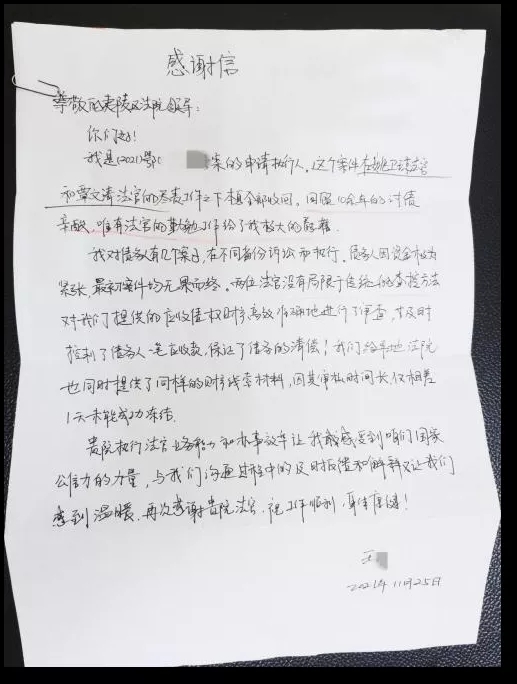 感谢信
尊敬的夷陵区法院领导：
你们好！
我是(2021)鄂( 案的申请执行人，这个案件在姚卫琼法官
和覃文清法官的尽责工作之下标全部收回，回顾10余年的讨债
辛酸，唯有法官的勤勉工作给了我极大的慰藉
我对债务有几个案子，在不同省份诉讼和执行，债务人因资金极为
紧张，最初案件均无果而终，两位法官没有局限于传统的查控方法
对我们提供的应收债权财产高效准确地进行了审查，并及时
控制了债务人一笔应收款，保证了债务的清偿！我们给异地法院
也同时提供了同样的财产线索材料，因其审批时间长，仅相差
1天未能成功冻结。
贵院执行法官业务能力和办事效率让我能感受到咱们国家
公信力的力量，与我们沟通过程中的及时反馈和解释又让我们
感到温暖，再次感谢贵院法官，祝工作顺利，身体康健！
王
2021年11月25日